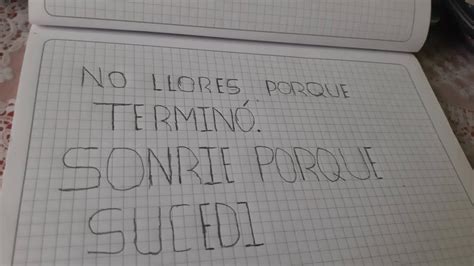 NO LLORES PORQUE
TERMINÓ.
SONRIE PORQUE
SUCEDI